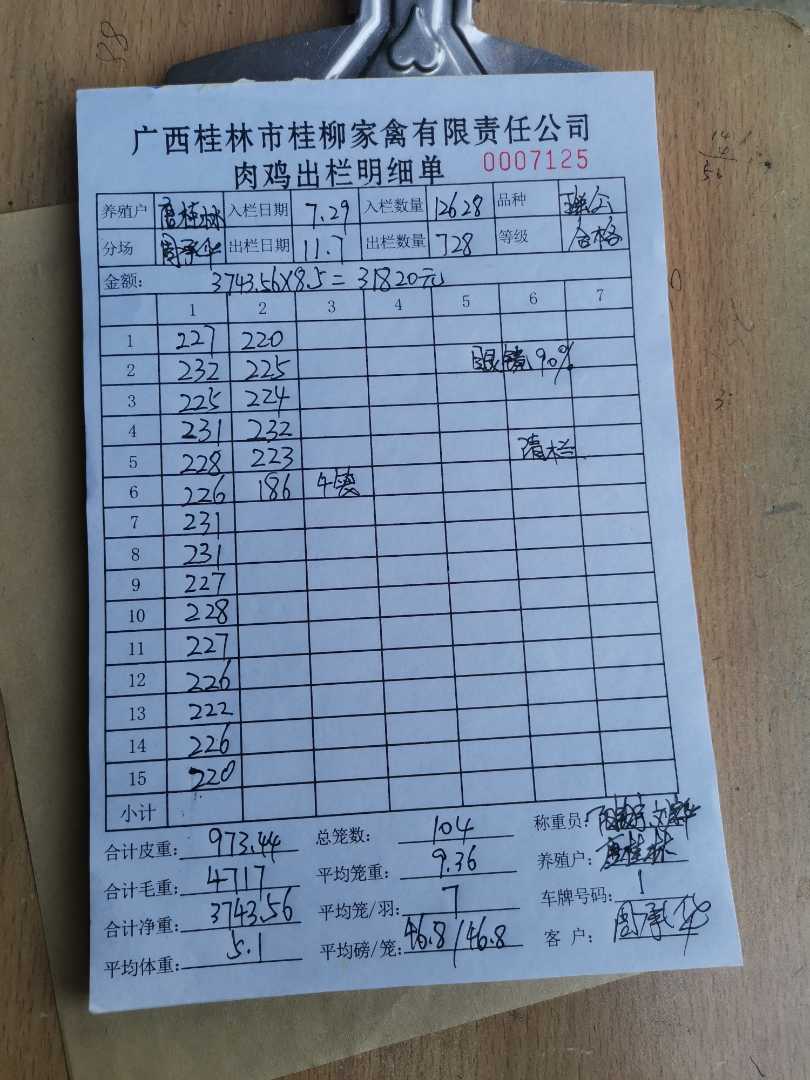 广西桂林市桂柳家禽有限责任公司
肉鸡出栏明细单 0007125
养殖户 唐桂林 入栏日期 7.29 入栏数量 12628 品种
分场 周承华 出栏日期 11.7 出栏数量 728 等级 合格
金额: 3743.56×8.5=31820元
1 2 3 4 5 6 7
1 227 220
2 232 225 眼镜90%
3 225 224
4 231 232
5 228 223 清栏
6 226 186 4笼
7 231
8 231
9 227
10 228
11 227
12 226
13 222
14 226
15 220
小计
合计皮重: 973.44 总笼数: 104 称重员:
合计毛重: 4717 平均笼重: 9.36 养殖户: 唐桂林
合计净重: 3743.56 平均笼/羽: 7 车牌号码: 1
平均体重: 5.1 平均磅/笼: 46.8/46.8 客户: 周承华